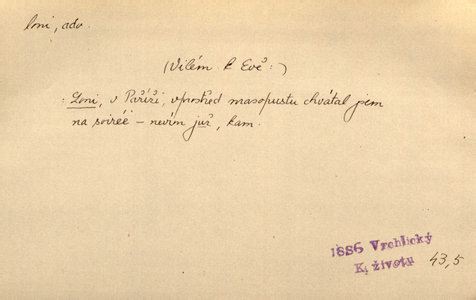 loni, adv.
(Vilém k Evě:)
: Loni, v Paříži, uprostřed masopustu chvátal jsem
na soirée – nevím již, kam.
1886 Vrchlický
K životu 43,5